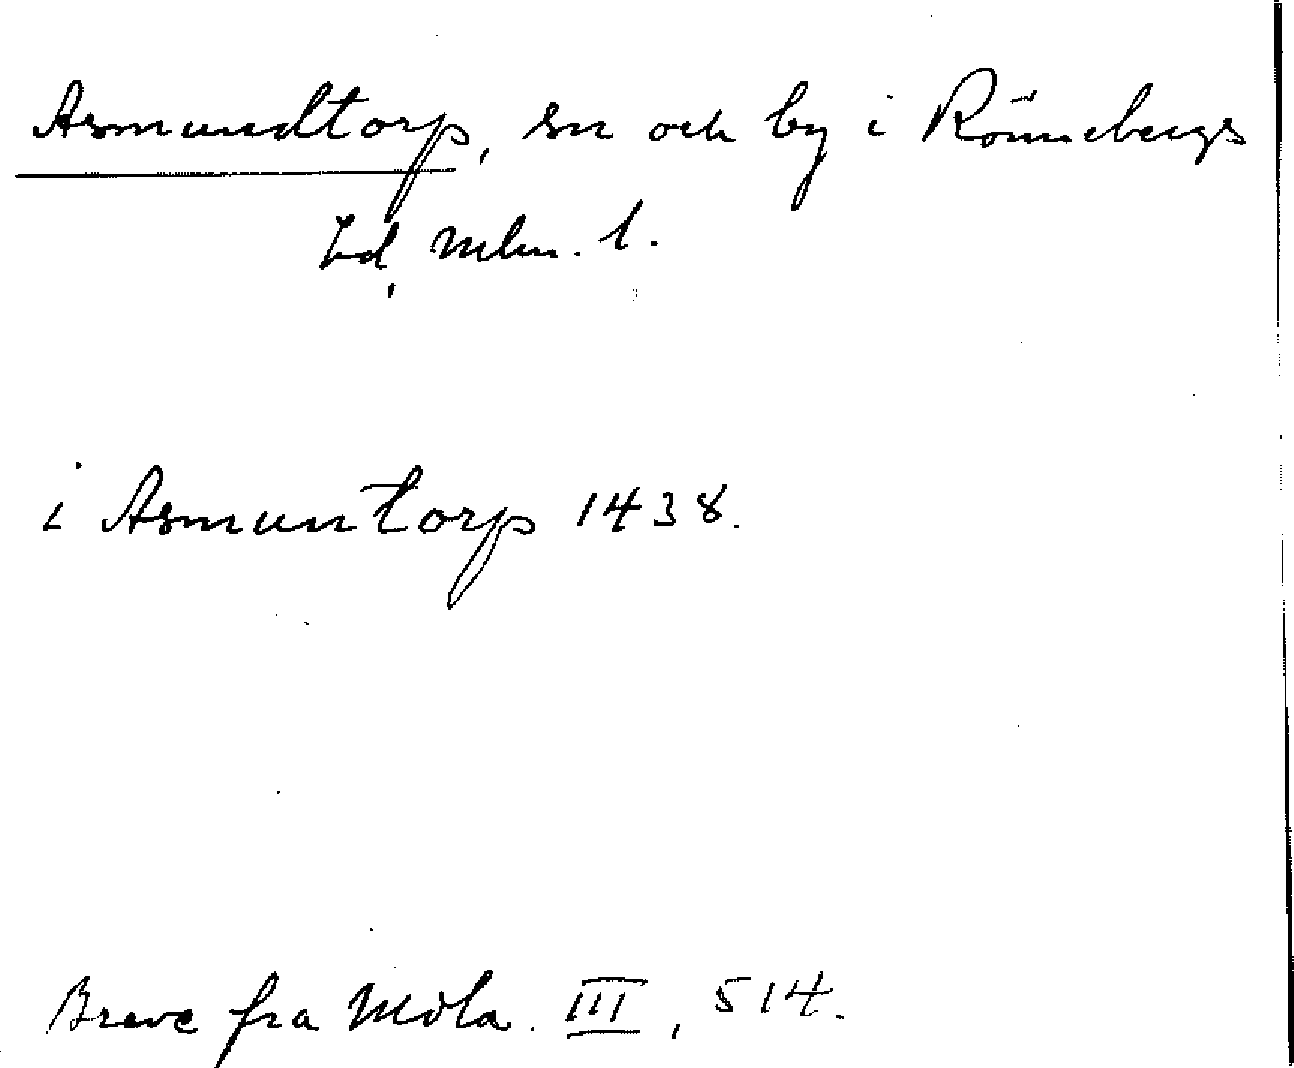 Asmundtorp, sn och by i Rönnebergs
hd, Mlm. l.
i Asmuntorp 1438.
Breve fra Mdla. III, 514.